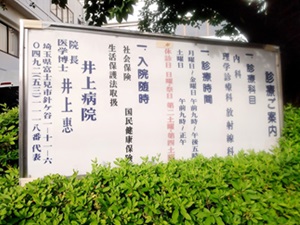 診療ご案内
一、診療科目
内科
理学診療科 放射線科
一、診療時間
月曜日〜金曜日 午前九時〜午後五時
土曜日 午前九時〜正午
休診日 日曜・祭日 第二土曜・第四土曜
一、入院随時
社会保険 国民健康保険
生活保護法取扱
井上病院
院長
医学博士 井上恵
埼玉県富士見市針ヶ谷一-十一-六
〇四九二(五三)一一一八番 代表